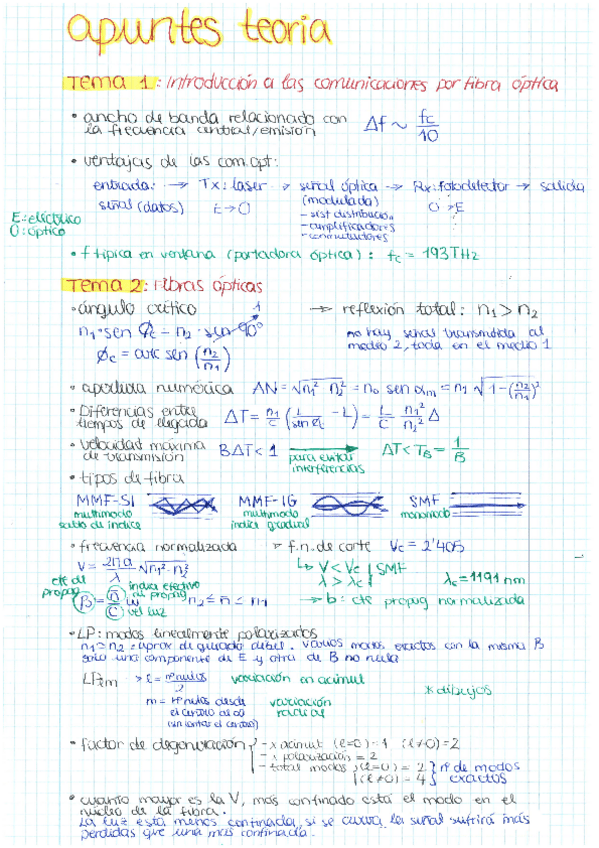 apuntes teoria
Tema 1: Introducción a las comunicaciones por fibra óptica
• ancho de banda relacionado con
la frecuencia central/emisión
Δf ~ fc/10
• ventajas de las com. opt:
entrada: → Tx: laser → señal óptica → Rx: fotodetector → salida
señal (datos) E→O (modulada) O→E
- sist distribución
- amplificadores
- conmutadores
E: eléctrico
O: óptico
• f típica en ventana (portadora óptica): fc = 193THz
Tema 2: Fibras ópticas
• ángulo crítico → reflexión total: n1 > n2
n1·sen Φc = n2·sen 90° 1
no hay señal transmitida al
medio 2, toda en el medio 1
Φc = arc sen (n2/n1)
• apertura numérica AN = √n1² n2² = n0 sen αm = n1 √1-(n2/n1)²
• Diferencias entre
tiempos de llegada
ΔT = n1/c (L/sen Φc - L) = L/c n1²/n2² Δ
• velocidad máxima
de transmisión
BΔT < 1 para evitar
interferencias
ΔT < TB = 1/B
• tipos de fibra
MMF-SI MMF-IG SMF
multimodo multimodo monomodo
salto de índice índice gradual
• frecuencia normalizada → f.n. de corte Vc = 2'405
V = 2πa/λ √n1²-n2²
↳ V < Vc | SMF
λ > λc |
λc = 1191 nm
cte de
propag
índice efectivo
de propag
β = n̄/c w n2 ≤ n̄ ≤ n1
vel luz
→ b: cte propag normalizada
• LP: modos linealmente polarizados
n1≃n2 = aprox de guiado débil. Varios modos exactos con la misma β
solo una componente de E y otra de B no nula
LPℓm → ℓ = nº nulos/2 variación en acimut
m = nº nulos desde
el centro al ∞
(sin contar el centro)
variación
radial
* dibujos
• factor de degeneración - x acimut (ℓ=0)=1 (ℓ≠0)=2
- x polarización = 2
- total modos (ℓ=0) = 2 nº de modos
(ℓ≠0) = 4 exactos
• cuanto mayor es la V, más confinado está el modo en el
núcleo de la fibra.
La luz está menos confinada, si se curva, la señal sufrirá más
pérdidas que una más confinada.